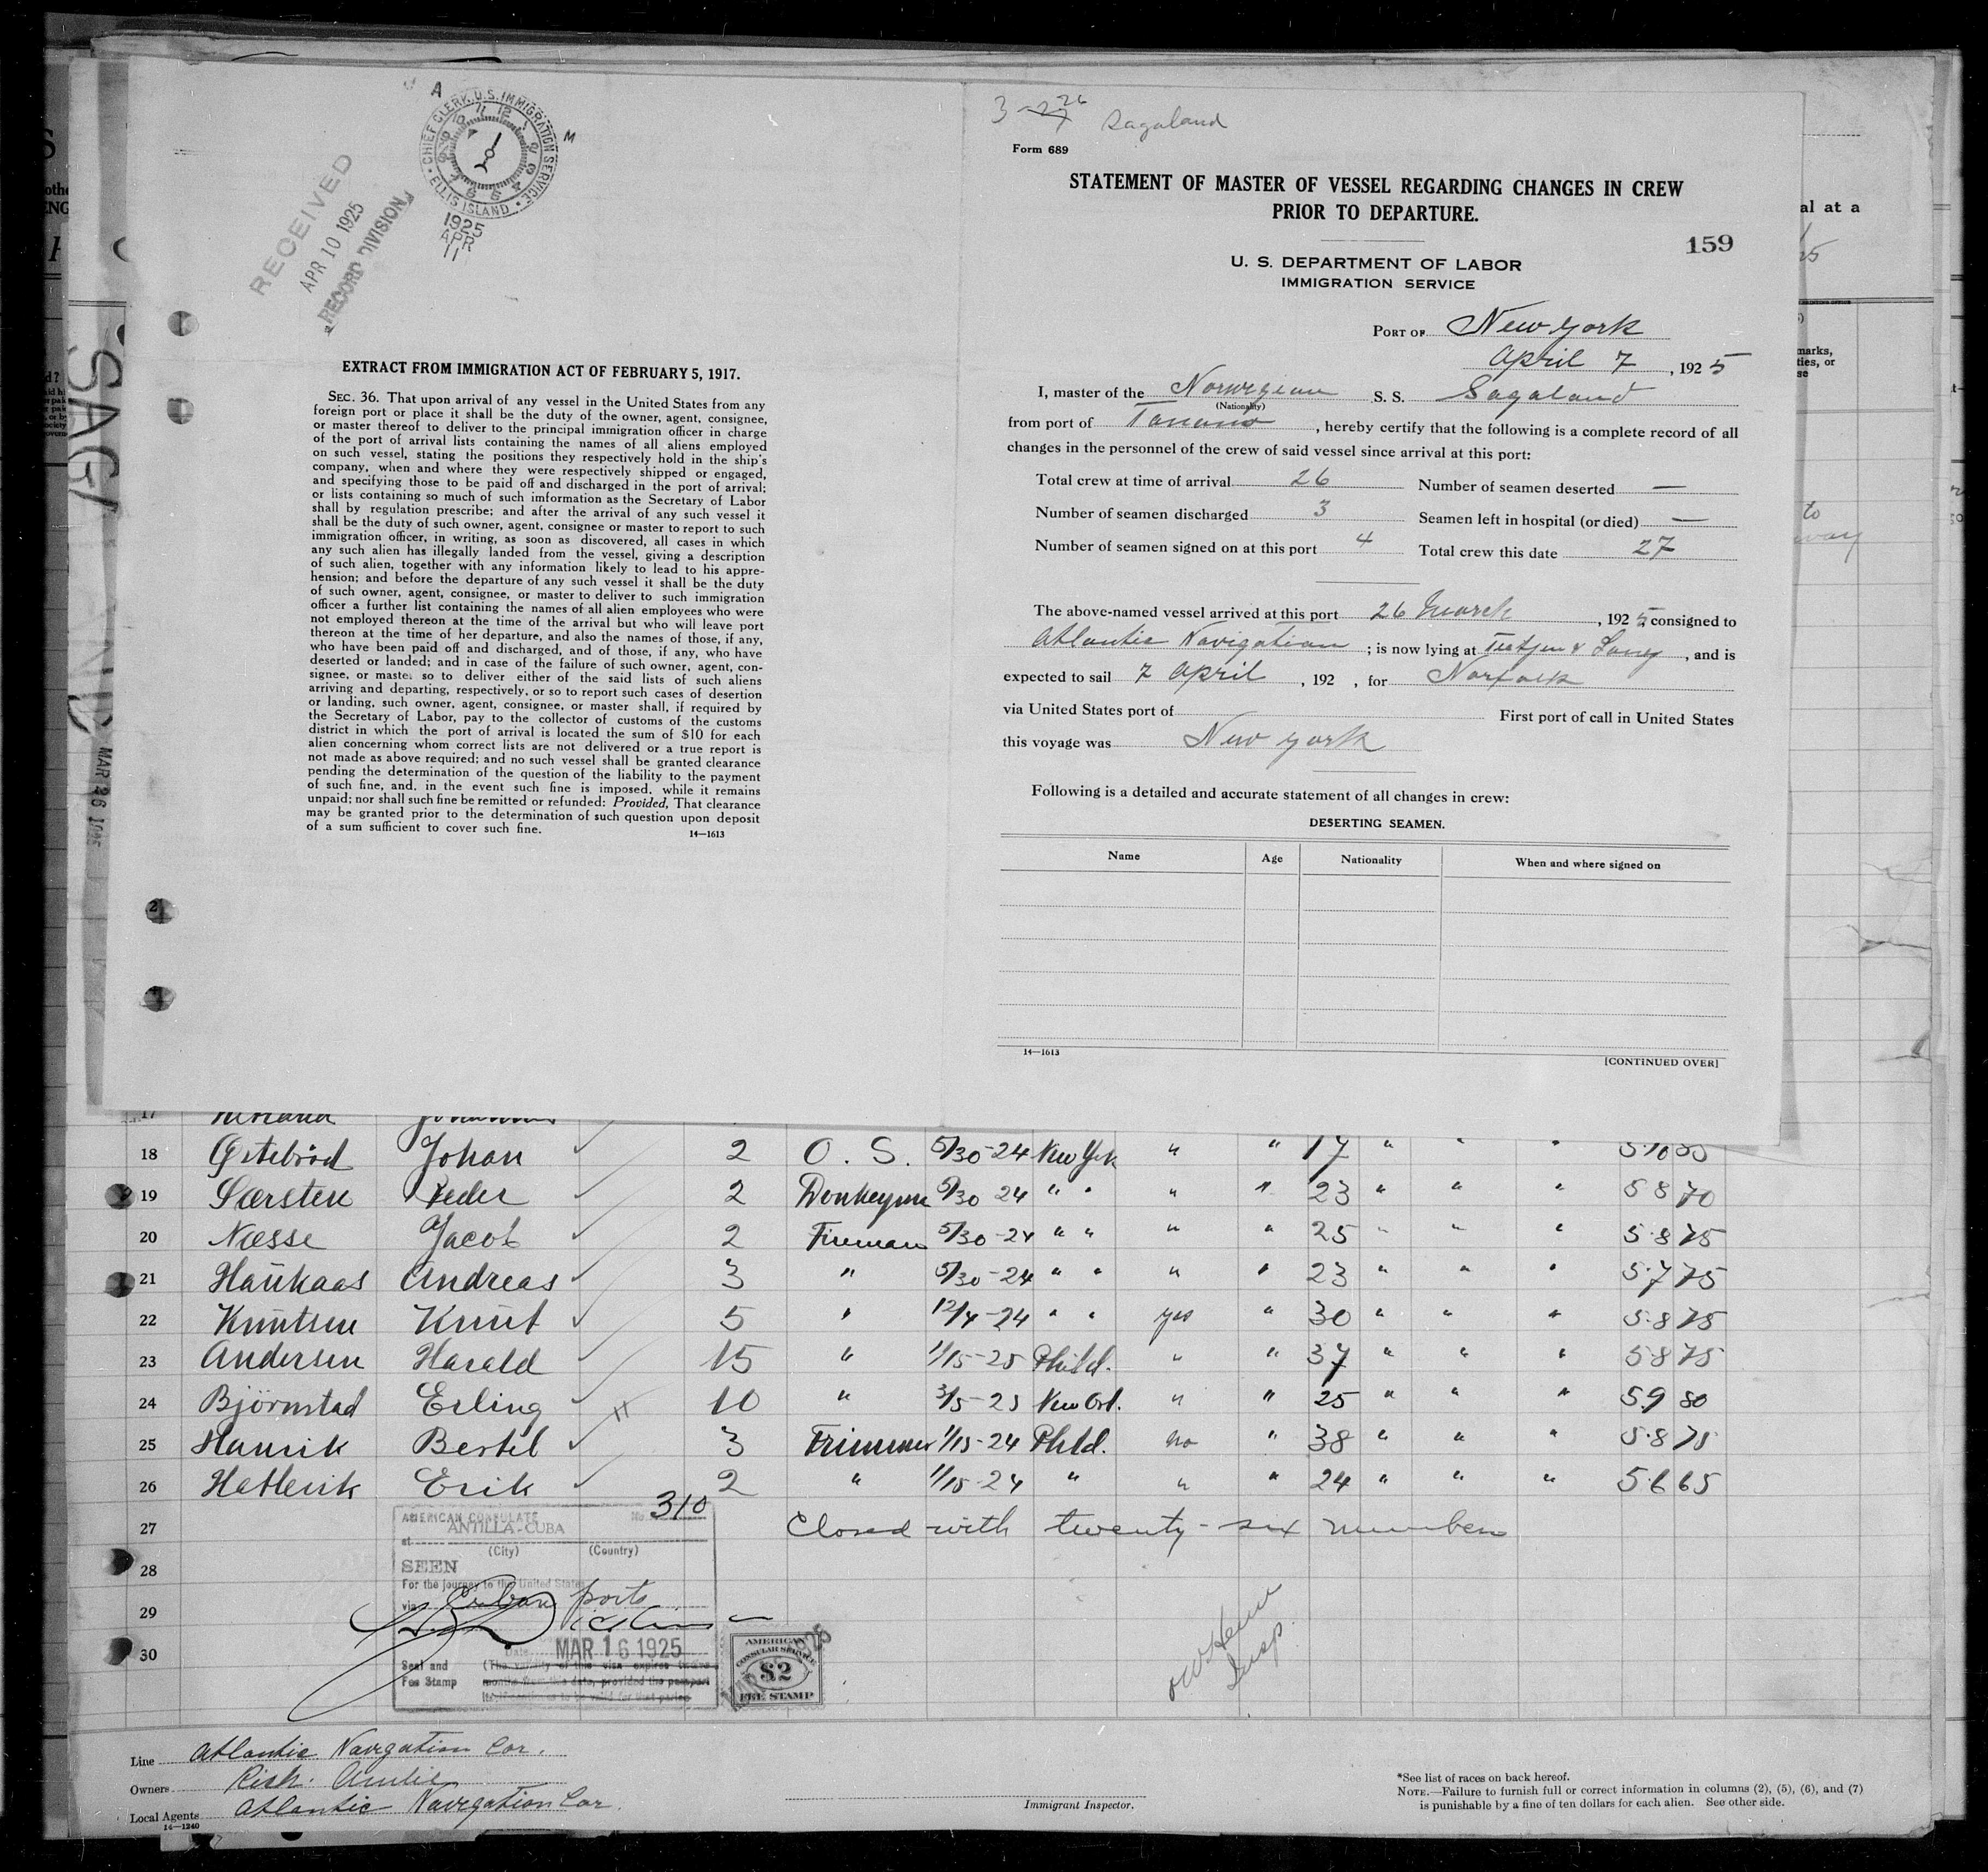 RECEIVED
APR 10 1925
RECORD DIVISION
CHIEF CLERK, U.S. IMMIGRATION SERVICE
ELLIS ISLAND
1925
APR
11
EXTRACT FROM IMMIGRATION ACT OF FEBRUARY 5, 1917.
SEC. 36. That upon arrival of any vessel in the United States from any
foreign port or place it shall be the duty of the owner, agent, consignee,
or master thereof to deliver to the principal immigration officer in charge
of the port of arrival lists containing the names of all aliens employed
on such vessel, stating the positions they respectively hold in the ship's
company, when and where they were respectively shipped or engaged,
and specifying those to be paid off and discharged in the port of arrival;
or lists containing so much of such imformation as the Secretary of Labor
shall by regulation prescribe; and after the arrival of any such vessel it
shall be the duty of such owner, agent, consignee or master to report to such
immigration officer, in writing, as soon as discovered, all cases in which
any such alien has illegally landed from the vessel, giving a description
of such alien, together with any information likely to lead to his appre-
hension; and before the departure of any such vessel it shall be the duty
of such owner, agent, consignee, or master to deliver to such immigration
officer a further list containing the names of all alien employees who were
not employed thereon at the time of the arrival but who will leave port
thereon at the time of her departure, and also the names of those, if any,
who have been paid off and discharged, and of those, if any, who have
deserted or landed; and in case of the failure of such owner, agent, con-
signee, or master so to deliver either of the said lists of such aliens
arriving and departing, respectively, or so to report such cases of desertion
or landing, such owner, agent, consignee, or master shall, if required by
the Secretary of Labor, pay to the collector of customs of the customs
district in which the port of arrival is located the sum of $10 for each
alien concerning whom correct lists are not delivered or a true report is
not made as above required; and no such vessel shall be granted clearance
pending the determination of the question of the liability to the payment
of such fine, and, in the event such fine is imposed, while it remains
unpaid; nor shall such fine be remitted or refunded: Provided, That clearance
may be granted prior to the determination of such question upon deposit
of a sum sufficient to cover such fine.
14—1613
3-27 26 Sagaland
Form 689
STATEMENT OF MASTER OF VESSEL REGARDING CHANGES IN CREW
PRIOR TO DEPARTURE.
159
U. S. DEPARTMENT OF LABOR
IMMIGRATION SERVICE
PORT OF New York
April 7, 1925
I, master of the Norwegian S. S. Sagaland
(Nationality)
from port of Tanamo, hereby certify that the following is a complete record of all
changes in the personnel of the crew of said vessel since arrival at this port:
Total crew at time of arrival 26 Number of seamen deserted —
Number of seamen discharged 3 Seamen left in hospital (or died) —
Number of seamen signed on at this port 4 Total crew this date 27
The above-named vessel arrived at this port 26 March, 1925, consigned to
Atlantic Navigation; is now lying at Tietjen & Lang, and is
expected to sail 7 April, 192 , for Norfolk
via United States port of First port of call in United States
this voyage was New York
Following is a detailed and accurate statement of all changes in crew:
DESERTING SEAMEN.
Name Age Nationality When and where signed on
14—1613
[CONTINUED OVER]
al at a
marks,
ties, or
to
SAGA
MAR 26 1925
17
18 Johan 2 O. S. 5/30-24 New York " " 17 " " " 5·10
19 Særsten Peder 2 Donkeym 5/30 24 " " " " 23 " " " 5 8 70
20 Næsse Jacob 2 Fireman 5/30-24 " " " " 25 " " " 5·8 75
21 Haukaas Andreas 3 " 5/30-24 " " " " 23 " " " 5·7 75
22 Knutsen Knut 5 " 12/4-24 " " yes " 30 " " " 5·8 75
23 Andersen Harald 15 " 1/15-25 Phild. " " 37 " " " 5 8 75
24 Bjørnstad Erling 10 " 3/5-25 New Orl. " " 25 " " " 5.9 80
25 Bertel 3 Trimmer 1/15-24 Phld. no " 38 " " " 5·8 75
26 Hetlevik Erik 2 " 1/15-24 " " " 24 " " " 5·6 65
27 Closed with twenty-six members
28
29
30
AMERICAN CONSULATE No. 310
at ANTILLA-CUBA
(City) (Country)
SEEN
For the journey to the United States
via Cuban ports
Date MAR 16 1925
Seal and (The validity of this visa expires twelve
Fee Stamp months from this date, provided the passport
AMERICAN
CONSULAR SERVICE
$2
FEE STAMP
Insp.
Line Atlantic Navigation Cor.
Owners Rich. Amlie
Local Agents Atlantic Navigation Cor.
14—1240
Immigrant Inspector.
*See list of races on back hereof.
NOTE.—Failure to furnish full or correct information in columns (2), (5), (6), and (7)
is punishable by a fine of ten dollars for each alien. See other side.